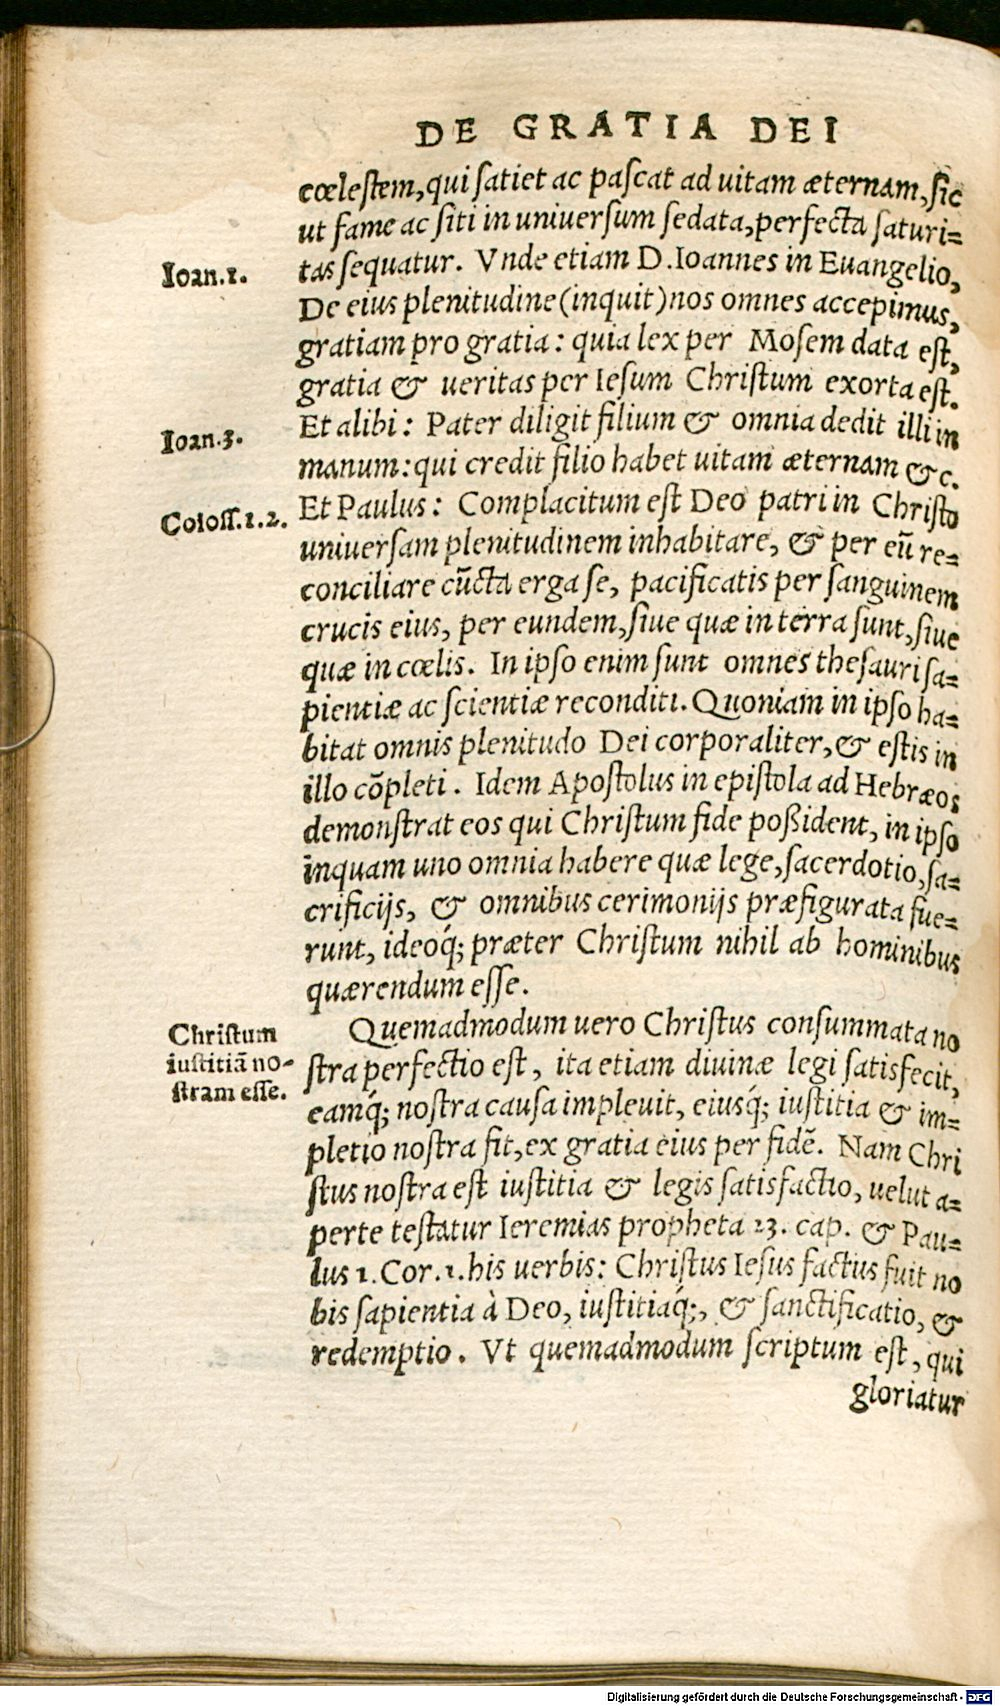 DE GRATIA DEI
cœlestem, qui satiet ac pascat ad uitam æternam, sic
ut fame ac siti in uniuersum sedata, perfecta saturi=
tas sequatur. Vnde etiam D. Ioannes in Euangelio,
Ioan.1.
De eius plenitudine (inquit) nos omnes accepimus,
gratiam pro gratia: quia lex per Mosem data est,
gratia & ueritas per Iesum Christum exorta est.
Et alibi: Pater diligit filium & omnia dedit illi in
Ioan.3.
manum: qui credit filio habet uitam æternam &c.
Et Paulus: Complacitum est Deo patri in Christo
Coloss.1.2.
uniuersam plenitudinem inhabitare, & per eũ re=
conciliare cũcta erga se, pacificatis per sanguinem
crucis eius, per eundem, siue quæ in terra sunt, siue
quæ in cœlis. In ipso enim sunt omnes thesauri sa=
pientiæ ac scientiæ reconditi. Quoniam in ipso ha=
bitat omnis plenitudo Dei corporaliter, & estis in
illo cõpleti. Idem Apostolus in epistola ad Hebræos
demonstrat eos qui Christum fide poßident, in ipso
inquam uno omnia habere quæ lege, sacerdotio, sa=
crificijs, & omnibus cerimonijs præfigurata fue=
runt, ideoq́; præter Christum nihil ab hominibus
quærendum esse.
Quemadmodum uero Christus consummata no
Christum
iustitiã no-
stram esse.
stra perfectio est, ita etiam diuinæ legi satisfecit,
eamq́; nostra causa impleuit, eiusq́; iustitia & im=
pletio nostra fit, ex gratia eius per fidẽ. Nam Chri
stus nostra est iustitia & legis satisfactio, uelut a=
perte testatur Ieremias propheta 23. cap. & Pau=
lus 1. Cor. 1. his uerbis: Christus Iesus factus fuit no
bis sapientia à Deo, iustitiaq́;, & sanctificatio, &
redemptio. Vt quemadmodum scriptum est, qui
gloriatur
Digitalisierung gefördert durch die Deutsche Forschungsgemeinschaft - DFG